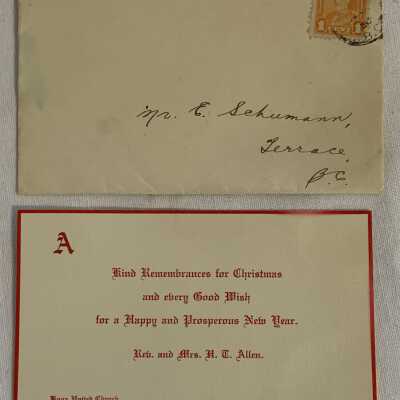 1
Mr. E. Schumann,
Terrace,
B.C.
A
Kind Remembrances for Christmas
and every Good Wish
for a Happy and Prosperous New Year.
Rev. and Mrs. H. T. Allen.
United Church